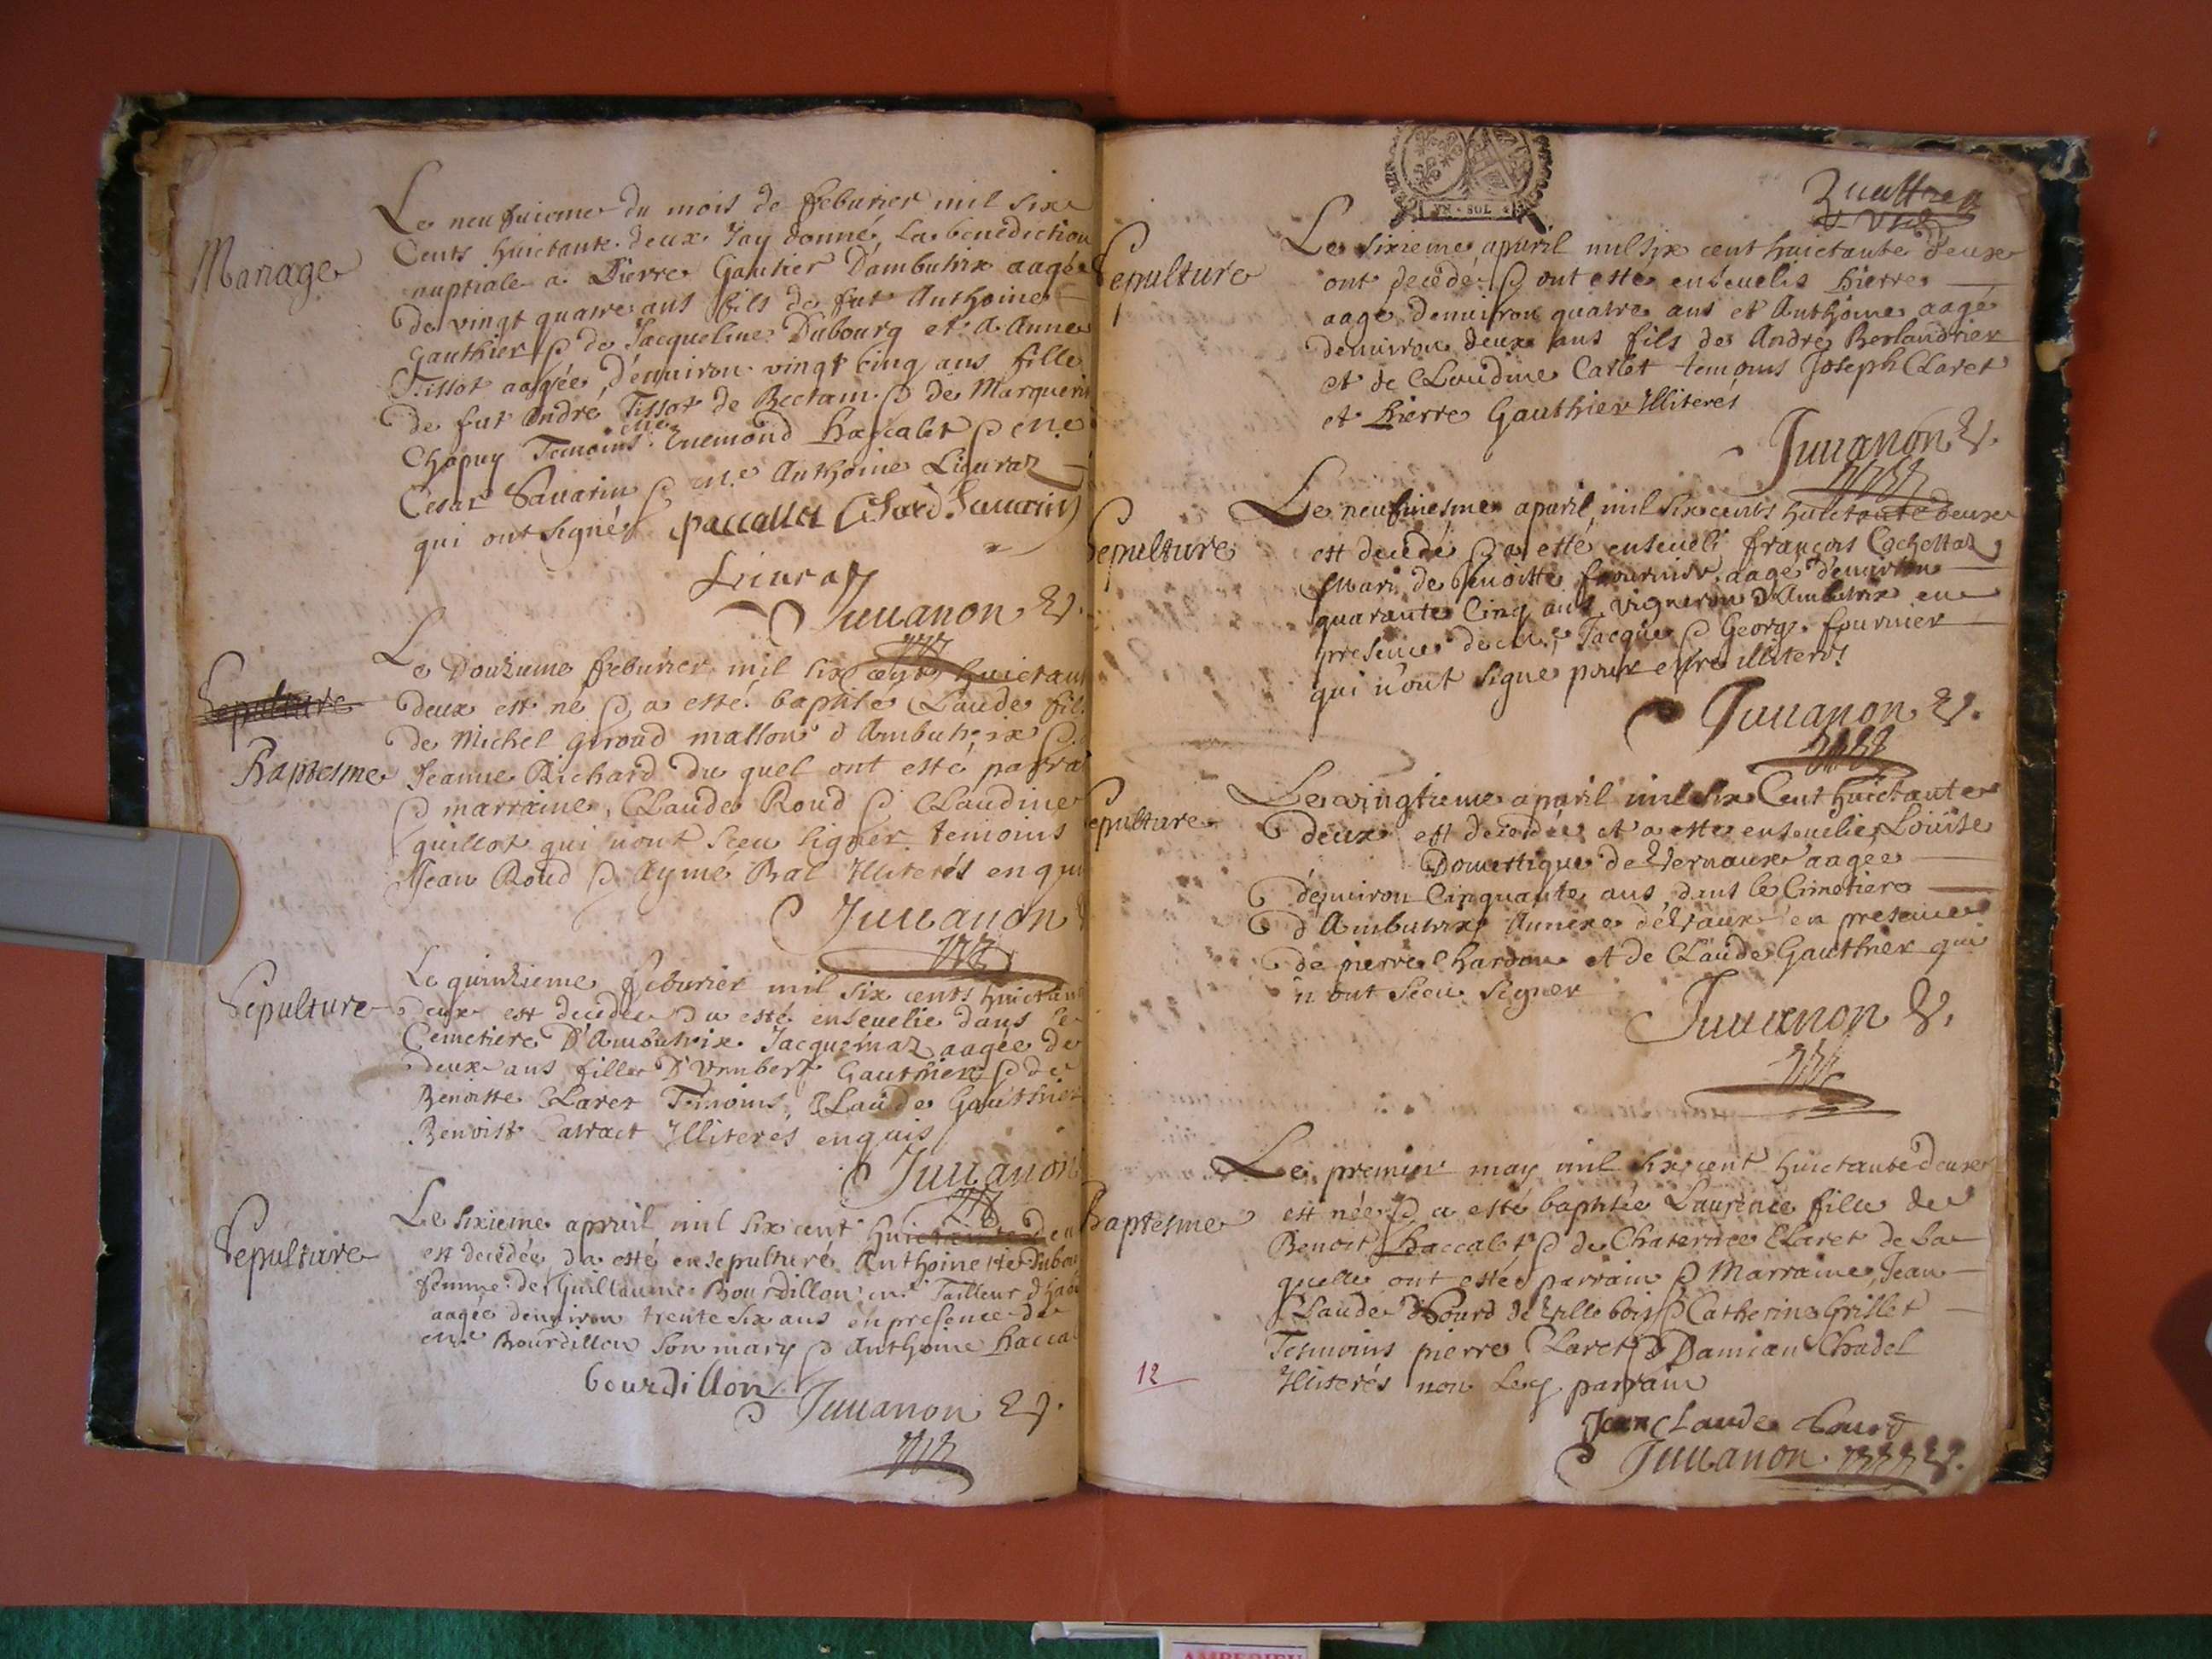 Mariage
Le neufuieme du mois de feburier mil six
Cents huictante deux Jay donné La benediction
nuptiale a Pierre Gautier D'ambutrix aagée
De vingt quatre ans fils de fut Anthoine
Gauthier & de Jacqueline Dubourg et a Anne
Tissot aagée d'enuiron vingt cinq ans fille
De fut André Tissot de Bectam & de Marguerit
Chapuy Temoins me Enemond Paccalet & me
Cesar Sauarin & me Anthoine Liguraz
qui ont signés paccallet Cesard Sauarin
Liura
Juuanon V.
Sepulture
Baptesme
Le Douzieme feburier mil six cent huictan
deux est né & a esté baptisé Claude fil
De Michel giroud masson d'Ambutrix &
Jeanne Richard du quel ont esté parra
& marraine, Claude Roud & Claudine
guillot qui n'ont sceu signer temoins
Jean Roud & Aymé Bal Illiterés enqui
Juuanon
Sepulture
Le quinzieme feburier mil six cents huictan
deux est decedée & a esté enseuelie dans le
Cemetiere D'Ambutrix Jacquemaz aagée de
deux ans fille D'Vmbert Gauthier & de
Benoiste Claret Temoins, Claude Gauthier
Benoist Illiteres enquis
Juuanon
Sepulture
Le sixieme apuril mil six cent huictante deu
est decedée & a esté ensepulturé Anthoinette Dubou
femme de Guillaume Bourdillon me Tailleur d'habi
aagée denuiron trente six ans en presence de
me Bourdillon son mary & Anthoine Pacca
bourdillon
Juuanon V.
VN SOL
Quattre
Sepulture
Le sixieme apuril mil six cent huictante deux
ont decedé & ont esté enseuelis Pierre
aagé denuiron quatre ans et Anthoine aagé
denuiron deux ans fils de André Berlandrier
et de Claudine Carlet temoins Joseph Claret
et Pierre Gauthier Illiterés
Juuanon V.
Sepulture
Le neufuiesme apuril mil six cents huictante deux
est decedé & a esté enseueli françois Cochettaz
Mari de Benoitte fournier aagé d'enuiron
quarante Cinq ans vigneron d'Ambutrix en
presence de me Jacque & George fournier
qui n'ont signe pour estre illiteres
Juuanon V.
Sepulture
Le vingtieme apuril mil six Cent huictante
deux est decedée et a esté enseuelie Louise
Domestique de Vernaux aagée
d'enuiron Cinquante ans dans le Cimetiere
d'Ambutrix Annexe de Vaux en presence
de pierre Chardon et de Claude Gauthier qui
n'ont sceu signer
Juuanon V.
Baptesme
Le premier may mil six cent huictante deux
est née & a esté baptisée Laurence fille de
Benoit Paccalet & de Chaterine Claret de La
quelle ont estés parrain & Marraine, Jean
Claude Bourd de Ville bois & Catherine Grillet
Tesmoins pierre Claret & Damian Chadel
Illiterés non Led. parrain
12
Jean Claude bourd
Juuanon V.
AMBERIEU